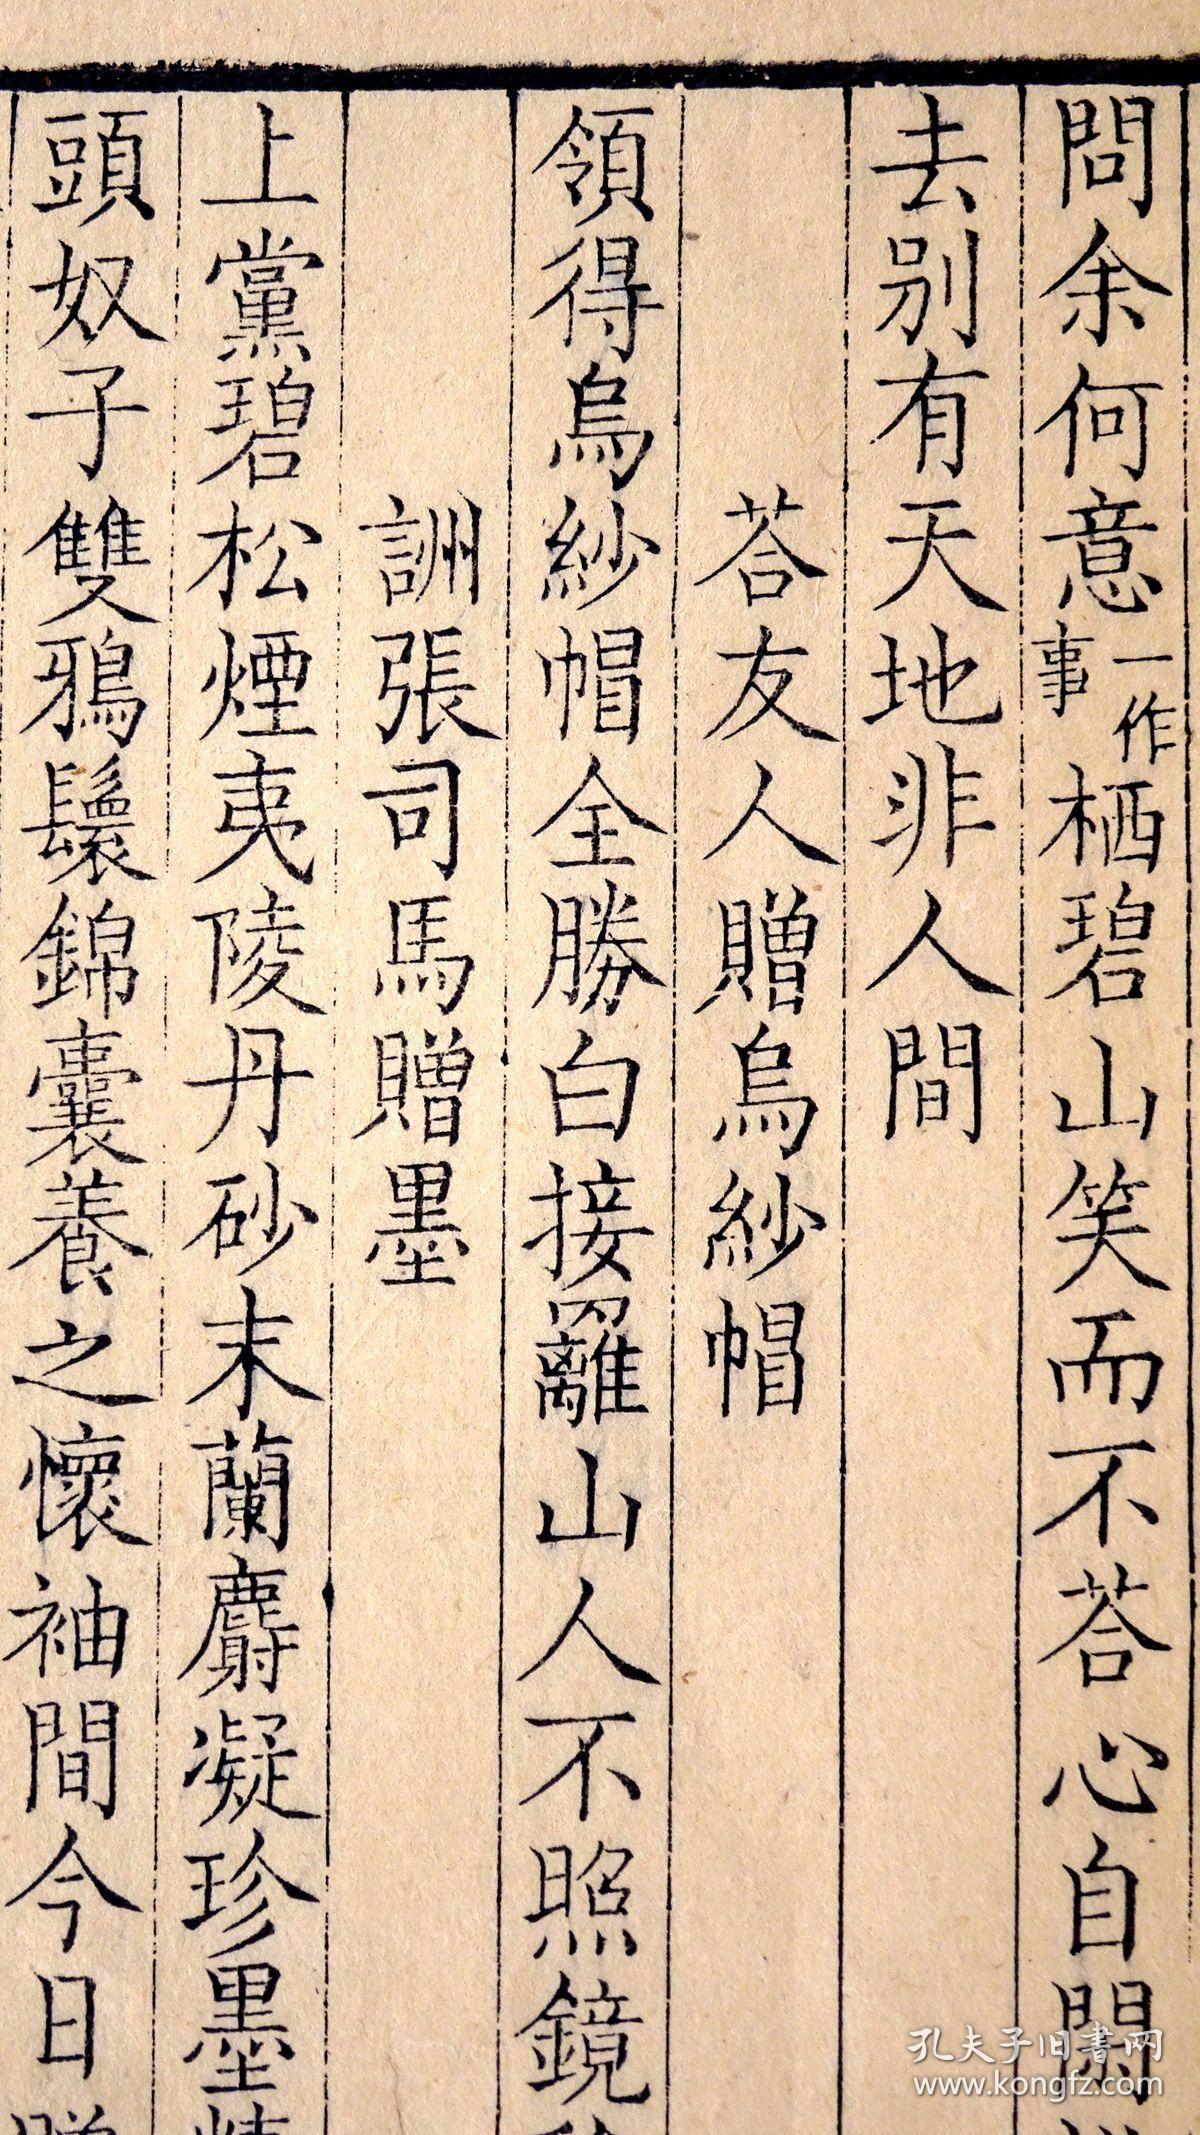 問余何意一作事栖碧山笑而不荅心自閑
去别有天地非人間
荅友人贈烏紗帽
領得烏紗帽全勝白接䍦山人不照鏡
詶張司馬贈墨
上黨碧松煙夷陵丹砂末蘭麝凝珍墨精
頭奴子雙鴉鬟錦囊養之懷袖間今日贈
孔夫子旧書网
www.kongfz.com